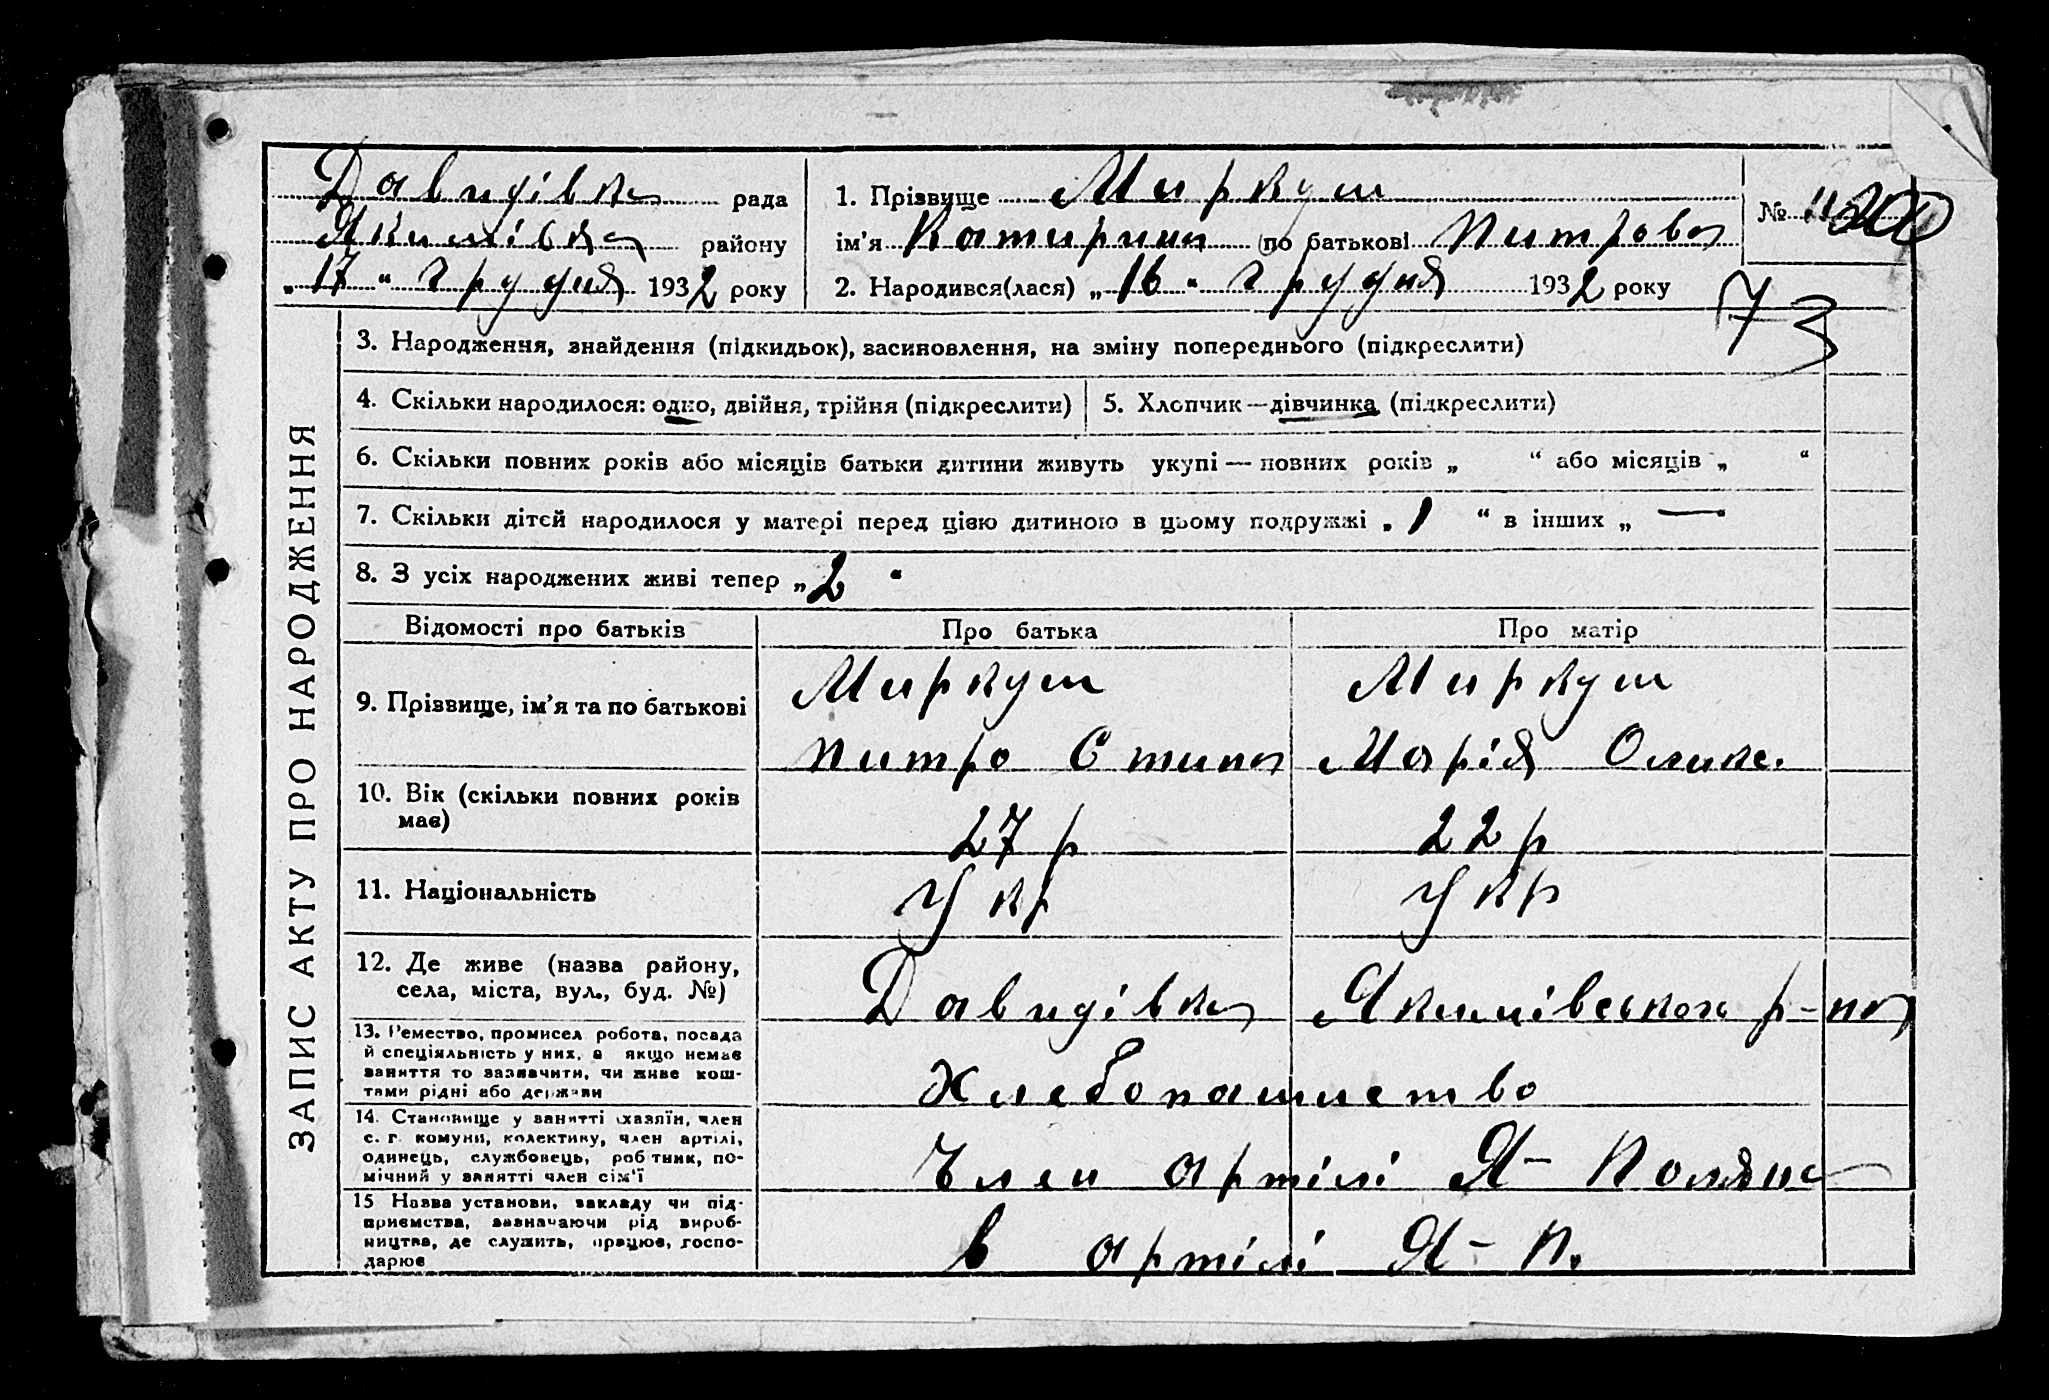 Давидівка рада
Якимівка району
„17“ грудня 1932 року
1. Прізвище Миркуш
ім'я Катирина (по батькові Питрова
2. Народився(лася) „16“ грудня 1932 року
№
73
ЗАПИС АКТУ ПРО НАРОДЖЕННЯ
3. Народження, знайдення (підкидьок), засиновлення, на зміну попереднього (підкреслити)
4. Скільки народилося: одно, двійня, трійня (підкреслити)
5. Хлопчик—дівчинка (підкреслити)
6. Скільки повних років або місяців батьки дитини живуть укупі — повних років „ “ або місяців „ “
7. Скільки дітей народилося у матері перед цією дитиною в цьому подружжі „1“ в інших „—“
8. З усіх народжених живі тепер „2“
Відомості про батьків Про батька Про матір
9. Прізвище, ім'я та по батькові
Миркуш
Питро Стипа
Миркуш
Марія Олике.
10. Вік (скільки повних років
має)
27 р
22 р
11. Національність
Укр
Укр
12. Де живе (назва району,
села, міста, вул., буд. №)
Давидівка Якимівського р-на
13. Ремество, промисел робота, посада
й спеціяльність у них, а якщо немає
заняття то зазначити, чи живе кош-
тами рідні або держави
Хлебопашество
14. Становище у занятті (хазяїн, член
с. г. комуни, колективу, член артілі,
одинець, службовець, робітник, по-
мічний у занятті член сім'ї
Член артілі Я- Поляна
15 Назва установи, закладу чи під-
приємства, зазначаючи рід вироб-
ництва, де служить, працює, госпо-
дарює
в артілі Я- П.